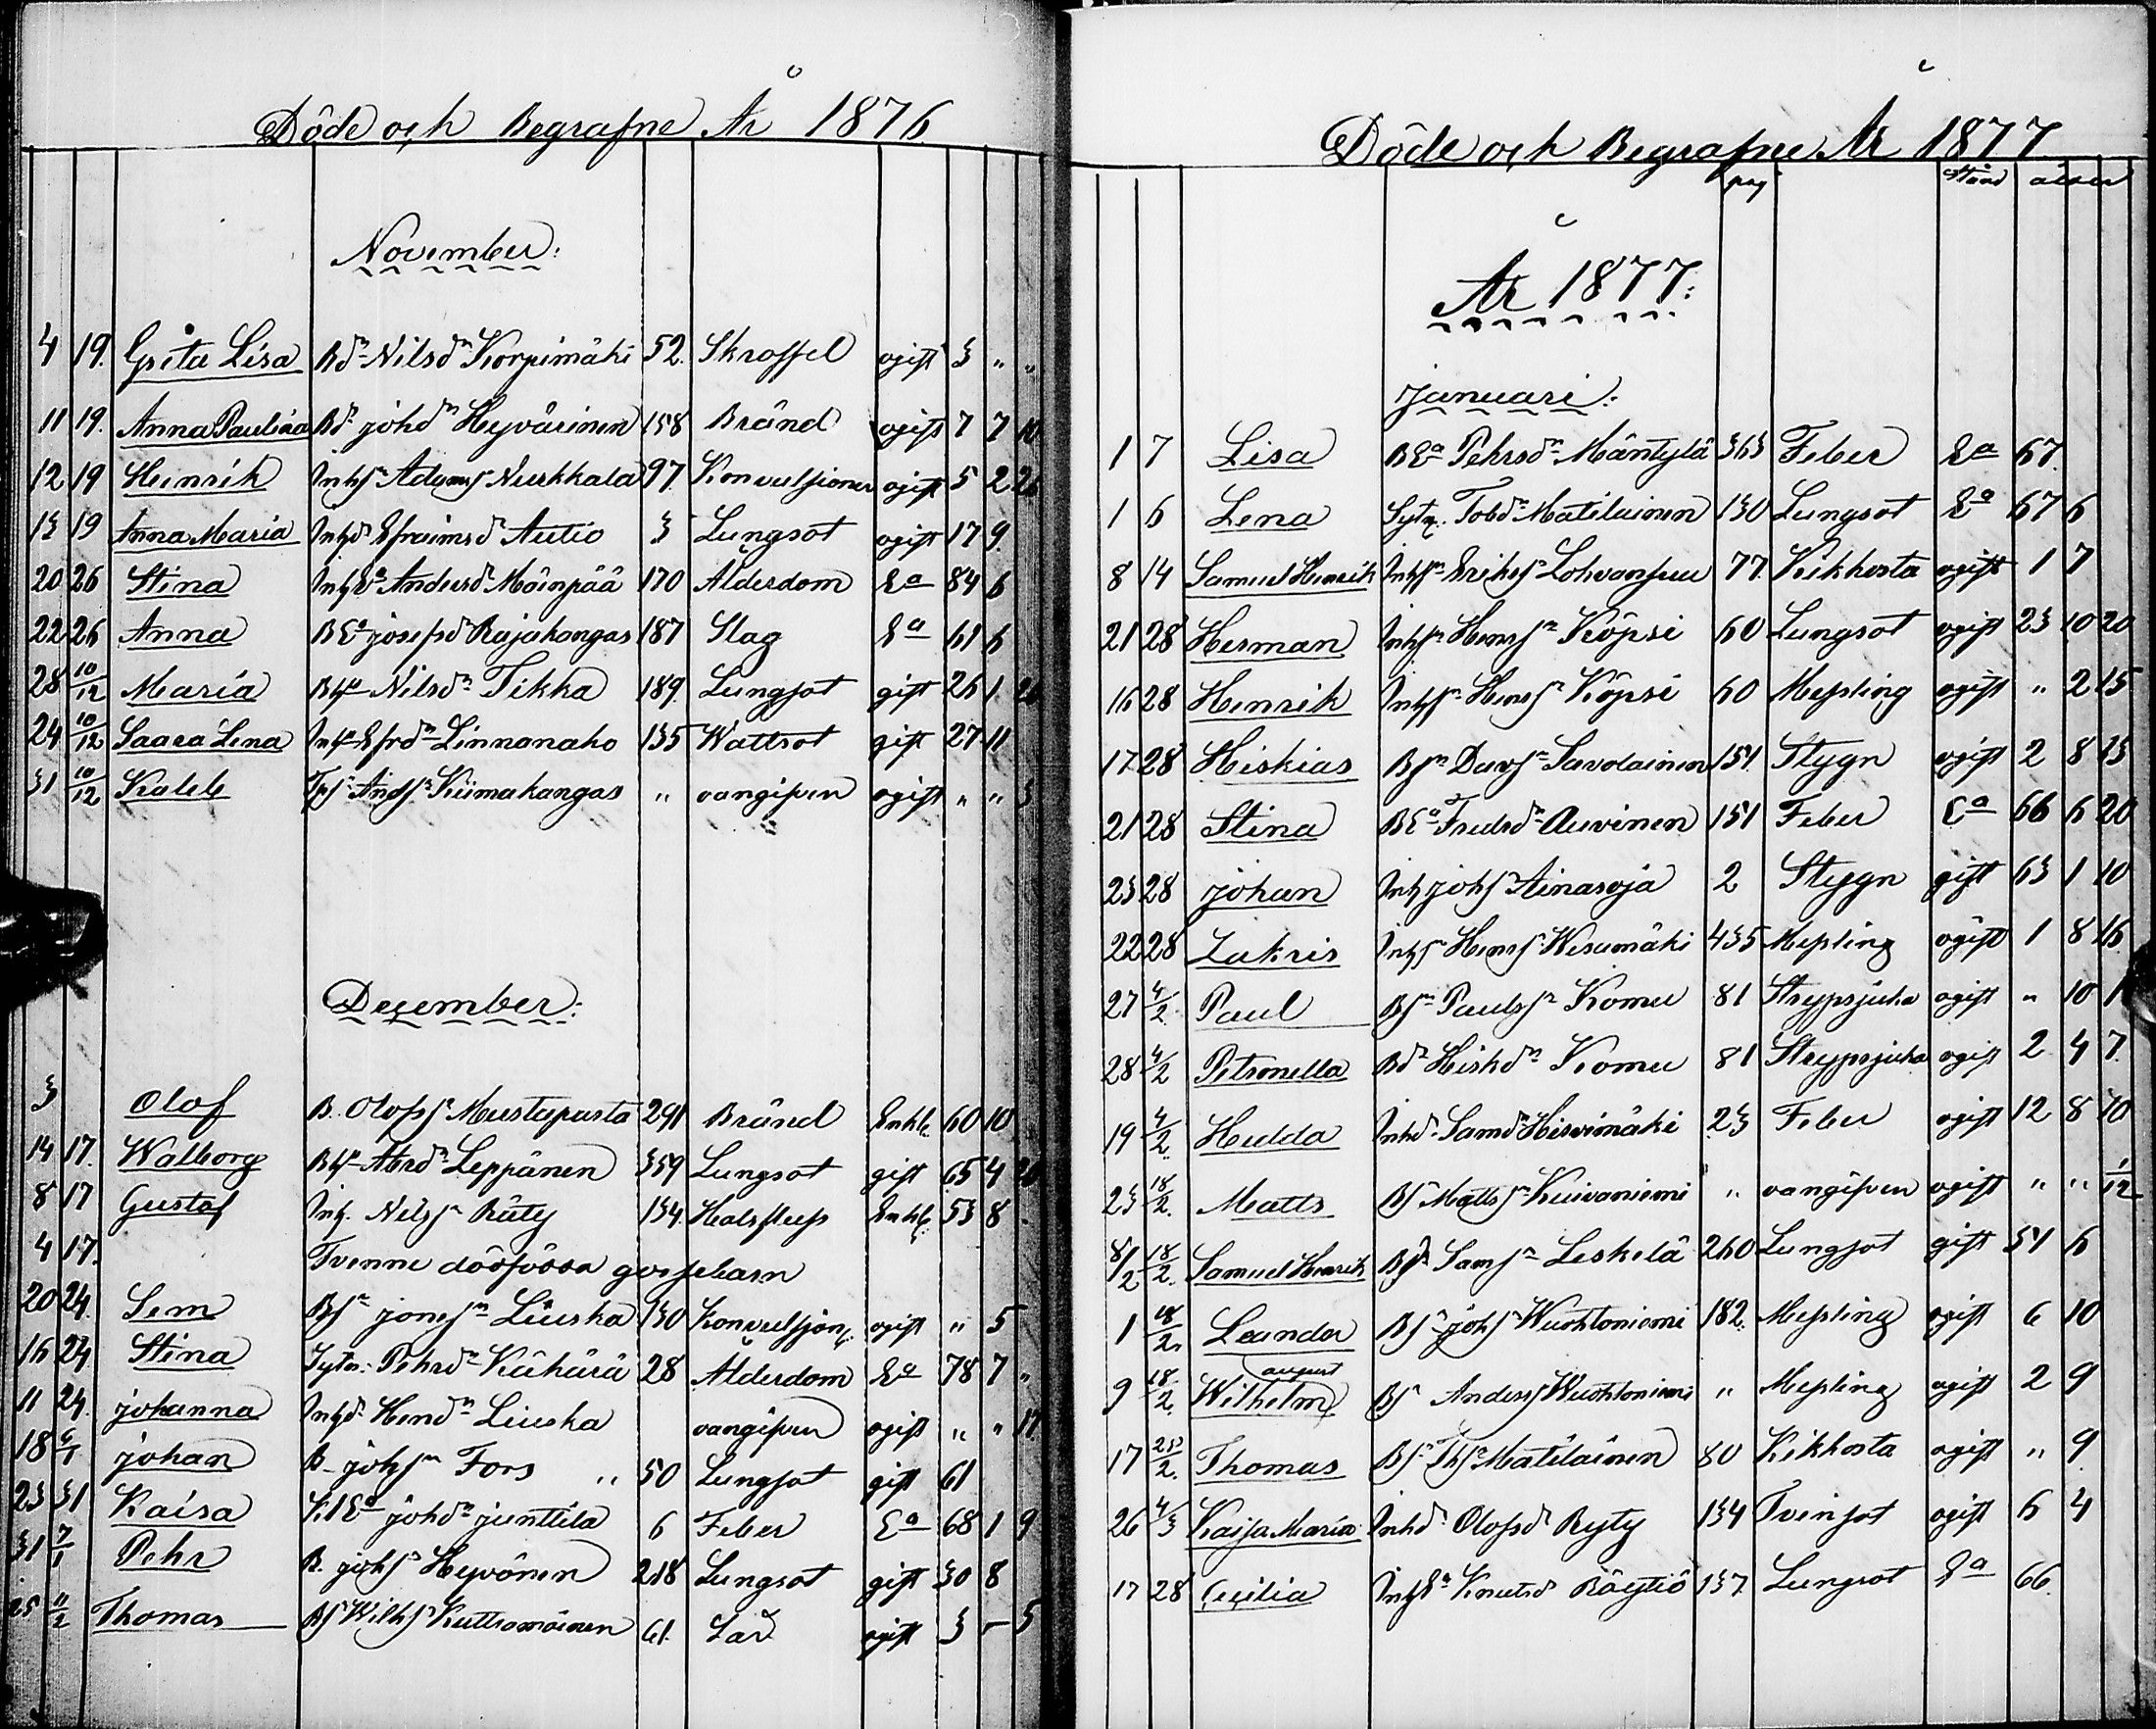 Döde och Begrafne År 1876
November:
4 19. Greta Lisa Bdr Nilsdr Korpimäki 52. Skroffel ogift 3 " "
11 19. Anna Paulina Bdr johdr Heyvärinen 158 Bränd ogift 7 7 10
12 19 Henrik Inhs Adams Nurkkala 97. Konvulsioner ogift 5 2 26
13 19 Anna Maria Inhdr Efraimsd Autio 3 Lungsot ogift 17 9.
20 26 Stina InhEa Andersdr Möinpää 170 Ålderdom Ea 84 6
22 26 Anna BEa josefsdr Rajakangas 187 Slag Ea 61 6
28 10/12 Maria Bhu Nilsdr Tikka 189. Lungsot gift 26 1 26
24 10/12 Saara Lena Inhu Efrdr Linnanaho 135 Wattsot gift 27 11
31 10/12 Kaleb Andsr Kiimakangas " oangifven ogift " " 3
December:
3 Olof B. Olofsr Mustapurta 291 Bränd Enkl. 60 10
14 17. Walborg Bhu Abrdr Leppänen 359 Lungsot gift 65 4 20
8 17 Gustaf Inh. Nilssr Räty 134. Halsfluss Enkl. 53 8
4 17. Tvenne dödfödda gossebarn
20 24. Sem Bsr jonssr Liuska 130 Konvulsion. ogift " 5
16 24 Stina Sytn. Pehrsdr Kähärä 28 Ålderdom Ea 78 7 "
11 24. johanna Inhdr Hendr Liuska oangifven ogift " " 17.
18 6/1 johan B. johsr Fors " 50 Lungsot gift 61
23 31 Kaisa johdr junttila 6 Feber Ea 68 1 9
31 7/1 Pehr B. johsr Heyvönen 218 Lungsot gift 30 8
25 11/2 Thomas Bs Wilhs 61. ogift 3 – 5
Döde och Begrafne År 1877
pag Stånd ålder
År 1877:
januari:
1 7 Lisa BEa Pehrsdr Mäntylä 363 Feber Ea 67.
1 6 Lena Sytn. Tobdr Matilainen 130 Lungsot Ea 67 6
8 14 Samuel Henrik Inhsr Eriks Lohvansuu 77. Kikhosta ogift 1 7
21 28 Herman Inhsr Henrsr Köpsi 60 Lungsot ogift 23 10 20
16 28 Henrik Inhsr Henrsr Köpsi 60 Messling ogift " 2 15
17 28 Hiskias Bsr Davsr Savolainen 151. Stygn ogift 2 8 13
21 28 Stina BEa Fredsdr Auvinen 151 Feber Ea 66 6 20
23 28 johan Inh johsr Ainasoja 2 Stygn gift 63 1 10
22 28 Zakris Inhsr Henrsr Wesumäki 435 Messling ogift 1 8 16
27 4/2 Paul Bsr Paulssr Komu 81 Strypsjuka ogift " 10 1
28 4/2 Petronella Bdr Hiskdr Komu 81 Strypsjuka ogift 2 4 7.
19 4/2 Hedda Inhdr Samdr Hirvimäki 23 Feber ogift 12 8 10
23 18/2 Matts Bs Mattssr Kuivaniemi " oangifven ogift " " 1/12
8/2 18/2 Samuel Henrik Bsr Samsr Leskelä 260 Lungsot gift 51 6
1 18/2. Leander Bsr johsr Wuohtoniemi 182. Messling ogift 6 10
august
9 18/2. Wilhelm Bsr Anderss Wuohtoniemi " Messling ogift 2 9
17 25/2. Thomas Bsr Thsr Matilainen 80 Kikhosta ogift " 9
26 4/3 Kajsa Maria Inhdr Olofsdr Ryty 134 Tvinsot ogift 6 4
17 28 Cecilia InhEa Knutsdr Röytiö 137. Lungsot Ea 66.